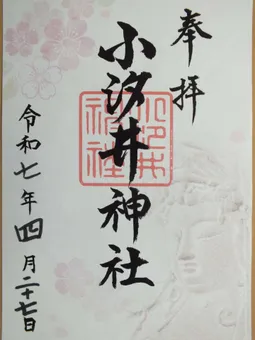 奉拝
小汐井神社
令和七年四月二十七日
小汐井神社